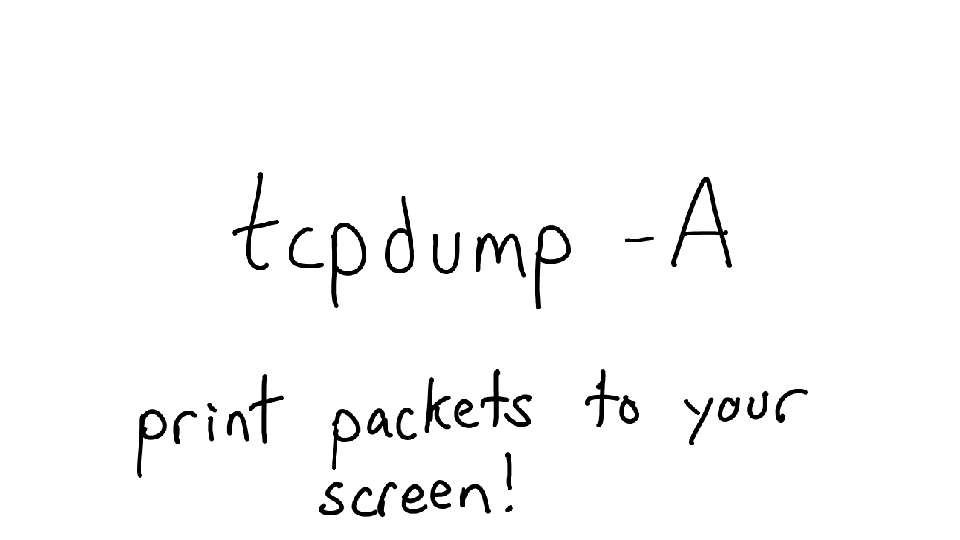 tcpdump -A
print packets to your
screen!